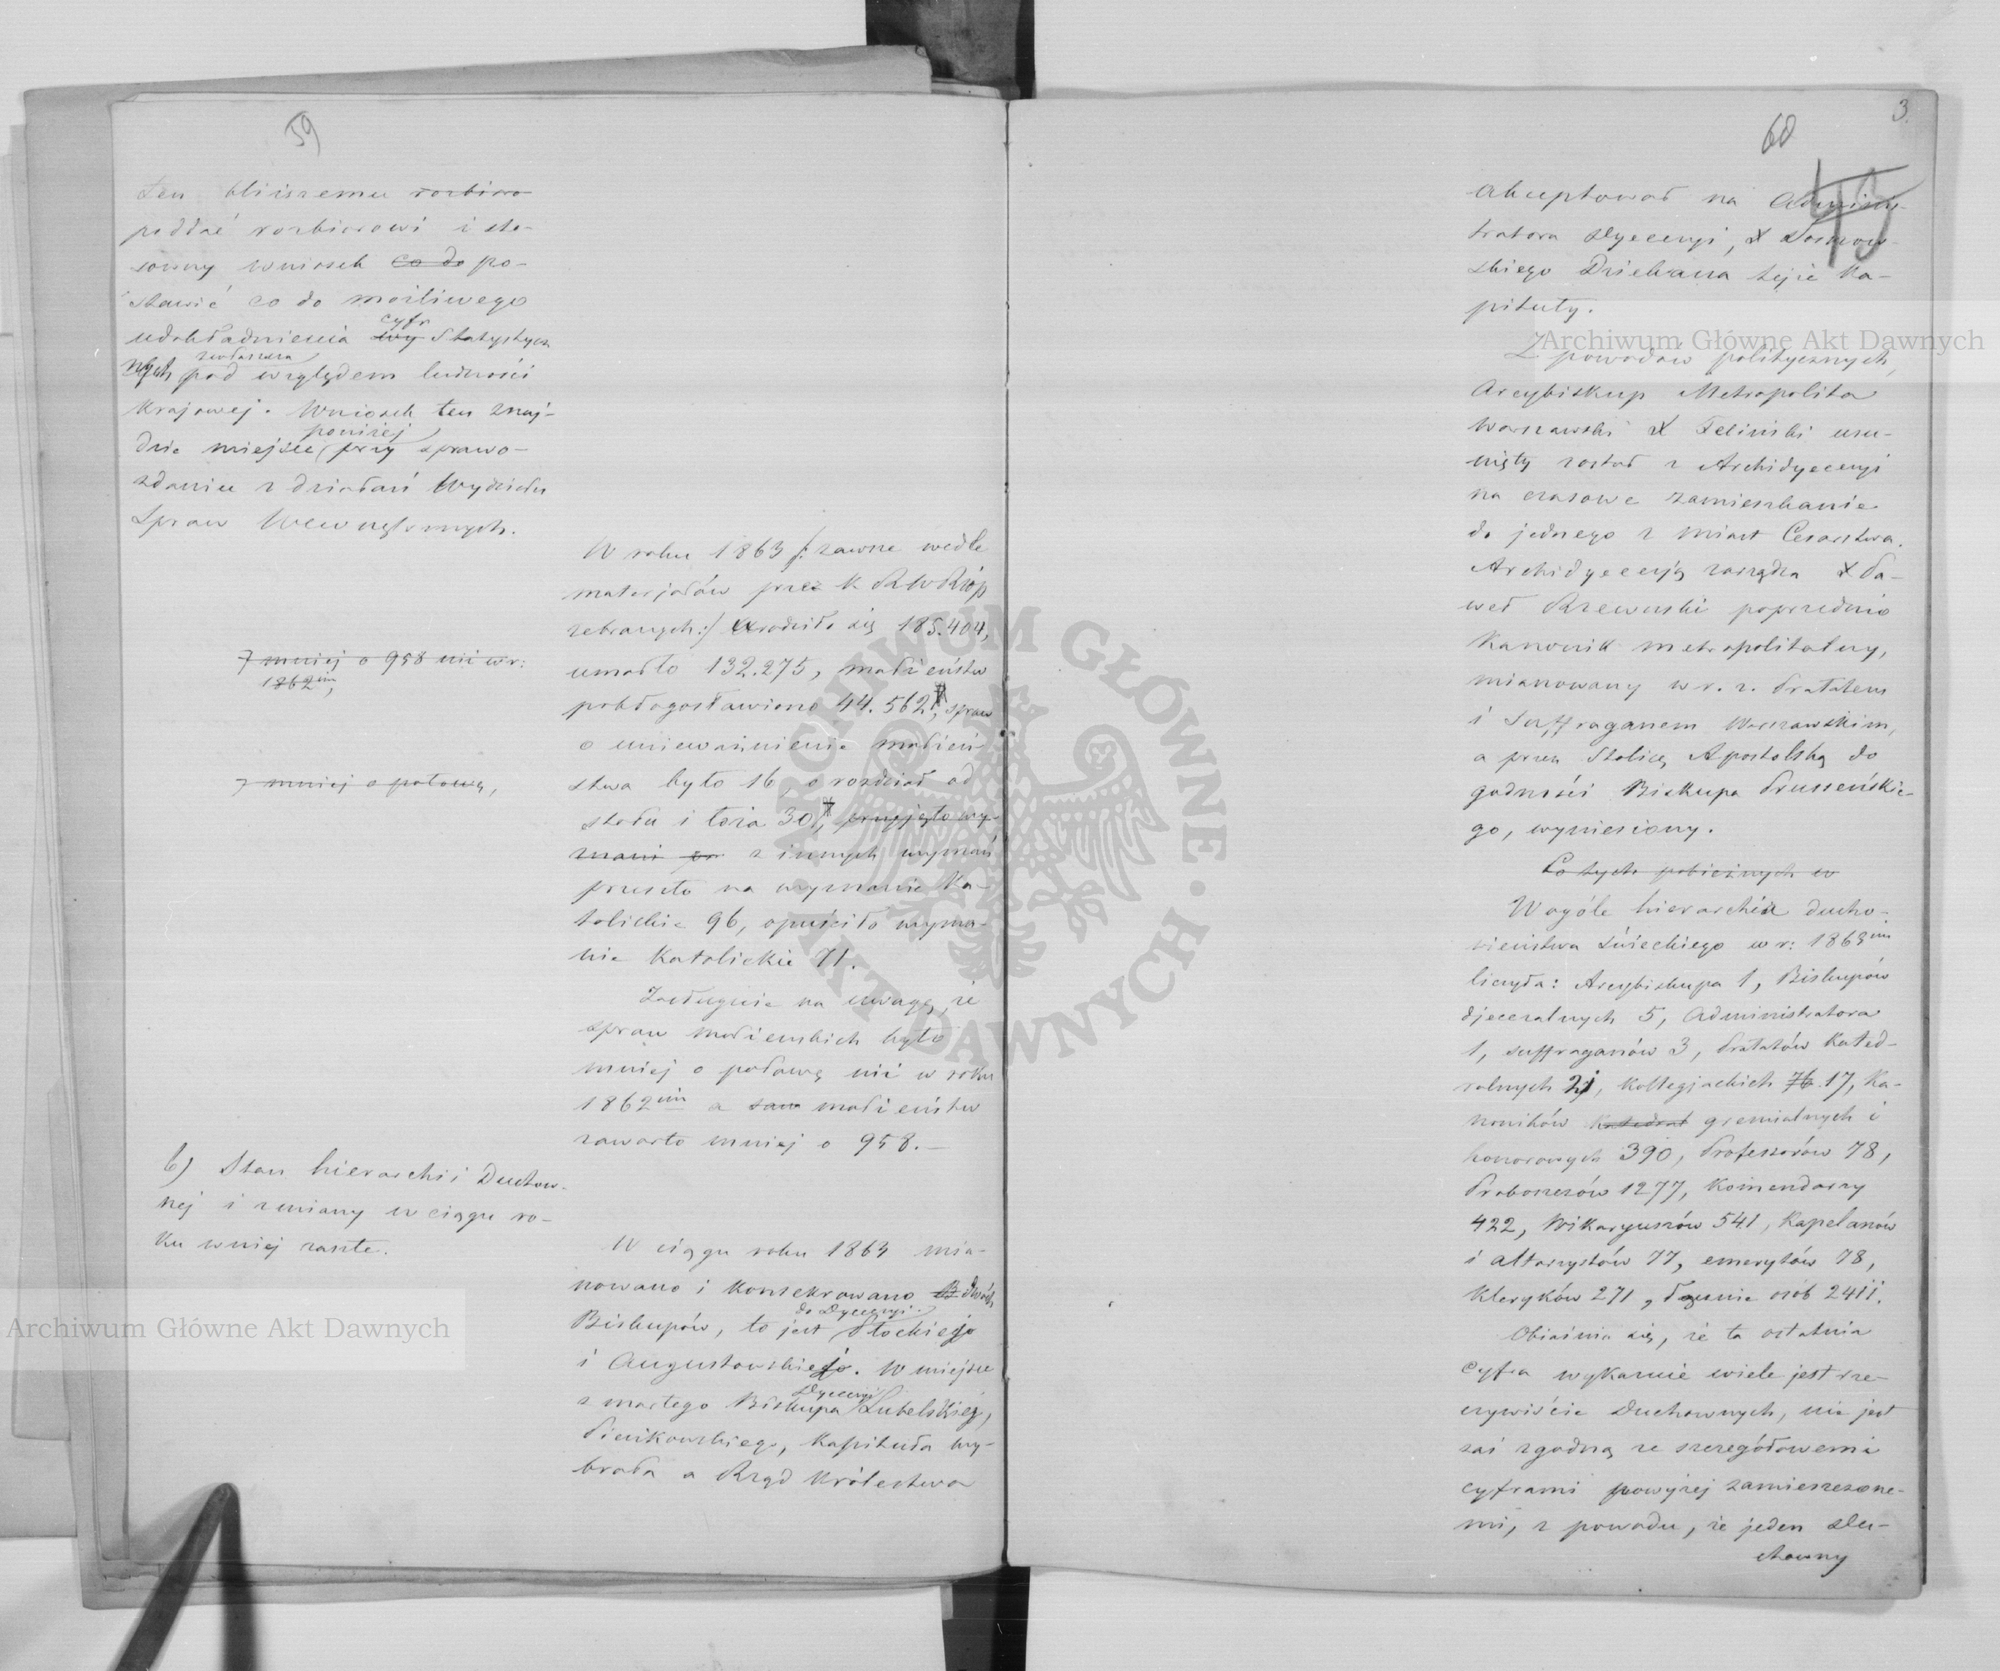 59
ten bliższemu rozbioro
poddać rozbiorowi i sto-
sowny wniosek co do po-
stawić co do możliwego
udokładnienia wy cyfr statystycz
nych zwłaszcza pod względem ludności
Krajowej. Wniosek ten znaj-
dzie miejsce poniżej przy sprawo-
zdaniu z działań Wydziału
Spraw Wewnętrznych.
W roku 1863 /: zawsze wedle
materjałów przez K
zebranych:/ urodziło się 185.404,
7 mniej o 958 niż w r:
1862im,
umarło 132.275, małżeństw
pobłogosławiono 44.562, spraw
o unieważnienie małżeń
7 mniej o połowę,
stwa było 16, o rozdział od
stołu i łoża 30, przyjęto wy-
znani z innych wyznań
przeszło na wyznanie Ka-
tolickie 96, opuściło wyzna-
nie Katolickie 71.
Zasługuje na uwagę, że
spraw małżeńskich było
mniej o połowę niż w roku
1862im a małżeństw
zawarto mniej o 958.—
b) Stan hierarchii Duchow-
nej i zmiany w ciągu ro-
ku w niej zaszłe.
W ciągu roku 1863 mia-
nowano i konsekrowano B dwóch
Biskupów, to jest do Dyecezyi Płockiej
i Augustowskiej. W miejsce
zmarłego Biskupa Dyecezyi Lubelskiej,
Pieńkowskiego, Kapituła wy-
brała a Rząd Królestwa
3.
60
45
akceptował na Adminis-
tratora Dyecezyi, X Sosnow-
skiego Dziekana tejże Ka-
pituły.
Z powodów politycznych,
Arcybiskup Metropolita
Warszawski X Feliński usu-
nięty został z Archidyecezyi
na czasowe zamieszkanie
do jednego z miast Cesarstwa.
Archidyecezyą zarządza X Pa-
weł Rzewuski poprzednio
Kanonik metropolitalny,
mianowany w r. z. Prałatem
i Suffraganem Warszawskim,
a przez Stolicę Apostolską do
godności Biskupa Pruseńskie-
go, wyniesiony.
Co tych pobieżnych w
Wogóle hierarchia ducho-
wieństwa świeckiego w r: 1863im
liczyła: Arcybiskupa 1, Biskupów
djecezalnych 5, Administratora
1, suffraganów 3, Prałatów Kated-
ralnych 21, Kollegjackich 76 17, Ka-
noników Katedral gremialnych i
honorowych 390, Professorów 78,
Proboszczów 1277, Komendarzy
422, Wikaryuszów 541, Kapelanów
i altarzystów 77, emerytów 78,
Kleryków 271, łącznie osób 2411.
Objaśnia się, że ta ostatnia
cyfra wykazuje wiele jest rze-
czywiście Duchownych, nie jest
zaś zgodną ze szczegółowemi
cyframi powyżej zamieszczone-
mi, z powodu, że jeden Du-
chowny
Archiwum Główne Akt Dawnych
Archiwum Główne Akt Dawnych
ARCHIWUM GŁÓWNE · AKT DAWNYCH ·